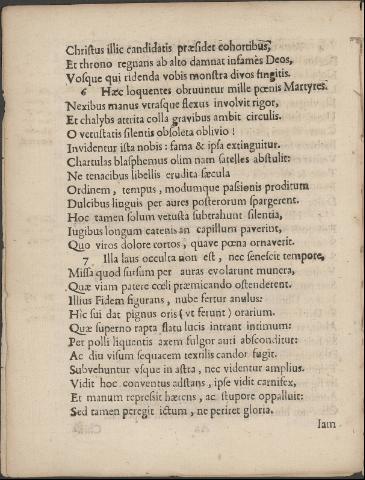 Christus illic candidatis præsidet cohortibus,
Et throno regnans ab alto damnat infames Deos,
Vosque qui ridenda vobis monstra divos fingitis.
6 Hæc loquentes obruuntur mille pœnis Martyres.
Nexibus manus vtrasque flexus involvit rigor,
Et chalybs attrita colla gravibus ambit circulis.
O vetustatis silentis obsoleta oblivio!
Invidentur ista nobis: fama & ipsa extinguitur.
Chartulas blasphemus olim nam satelles abstulit:
Ne tenacibus libellis erudita sæcula
Ordinem, tempus, modumque passionis proditum
Dulcibus linguis per aures posterorum spargerent.
Hoc tamen solum vetusta subtrahunt silentia,
Iugibus longum catenis an capillum paverint,
Quo viros dolore tortos, quave pœna ornaverit.
7. Illa laus occulta non est, nec senescit tempore,
Missa quod sursum per auras evolarunt munera,
Quæ viam patere cœli præmicando ostenderent.
Illius Fidem figurans, nube fertur anulus:
Hic sui dat pignus oris (vt ferunt) orarium.
Quæ superno rapta flatu lucis intrant intimum:
Per polli liquentis axem fulgor auri absconditur:
Ac diu visum sequacem textilis candor fugit.
Subvehuntur vsque in astra, nec videntur amplius.
Vidit hoc conventus adstans, ipse vidit carnifex,
Et manum repressit hærens, ac stupore oppalluit:
Sed tamen peregit ictum, ne periret gloria.
Iam